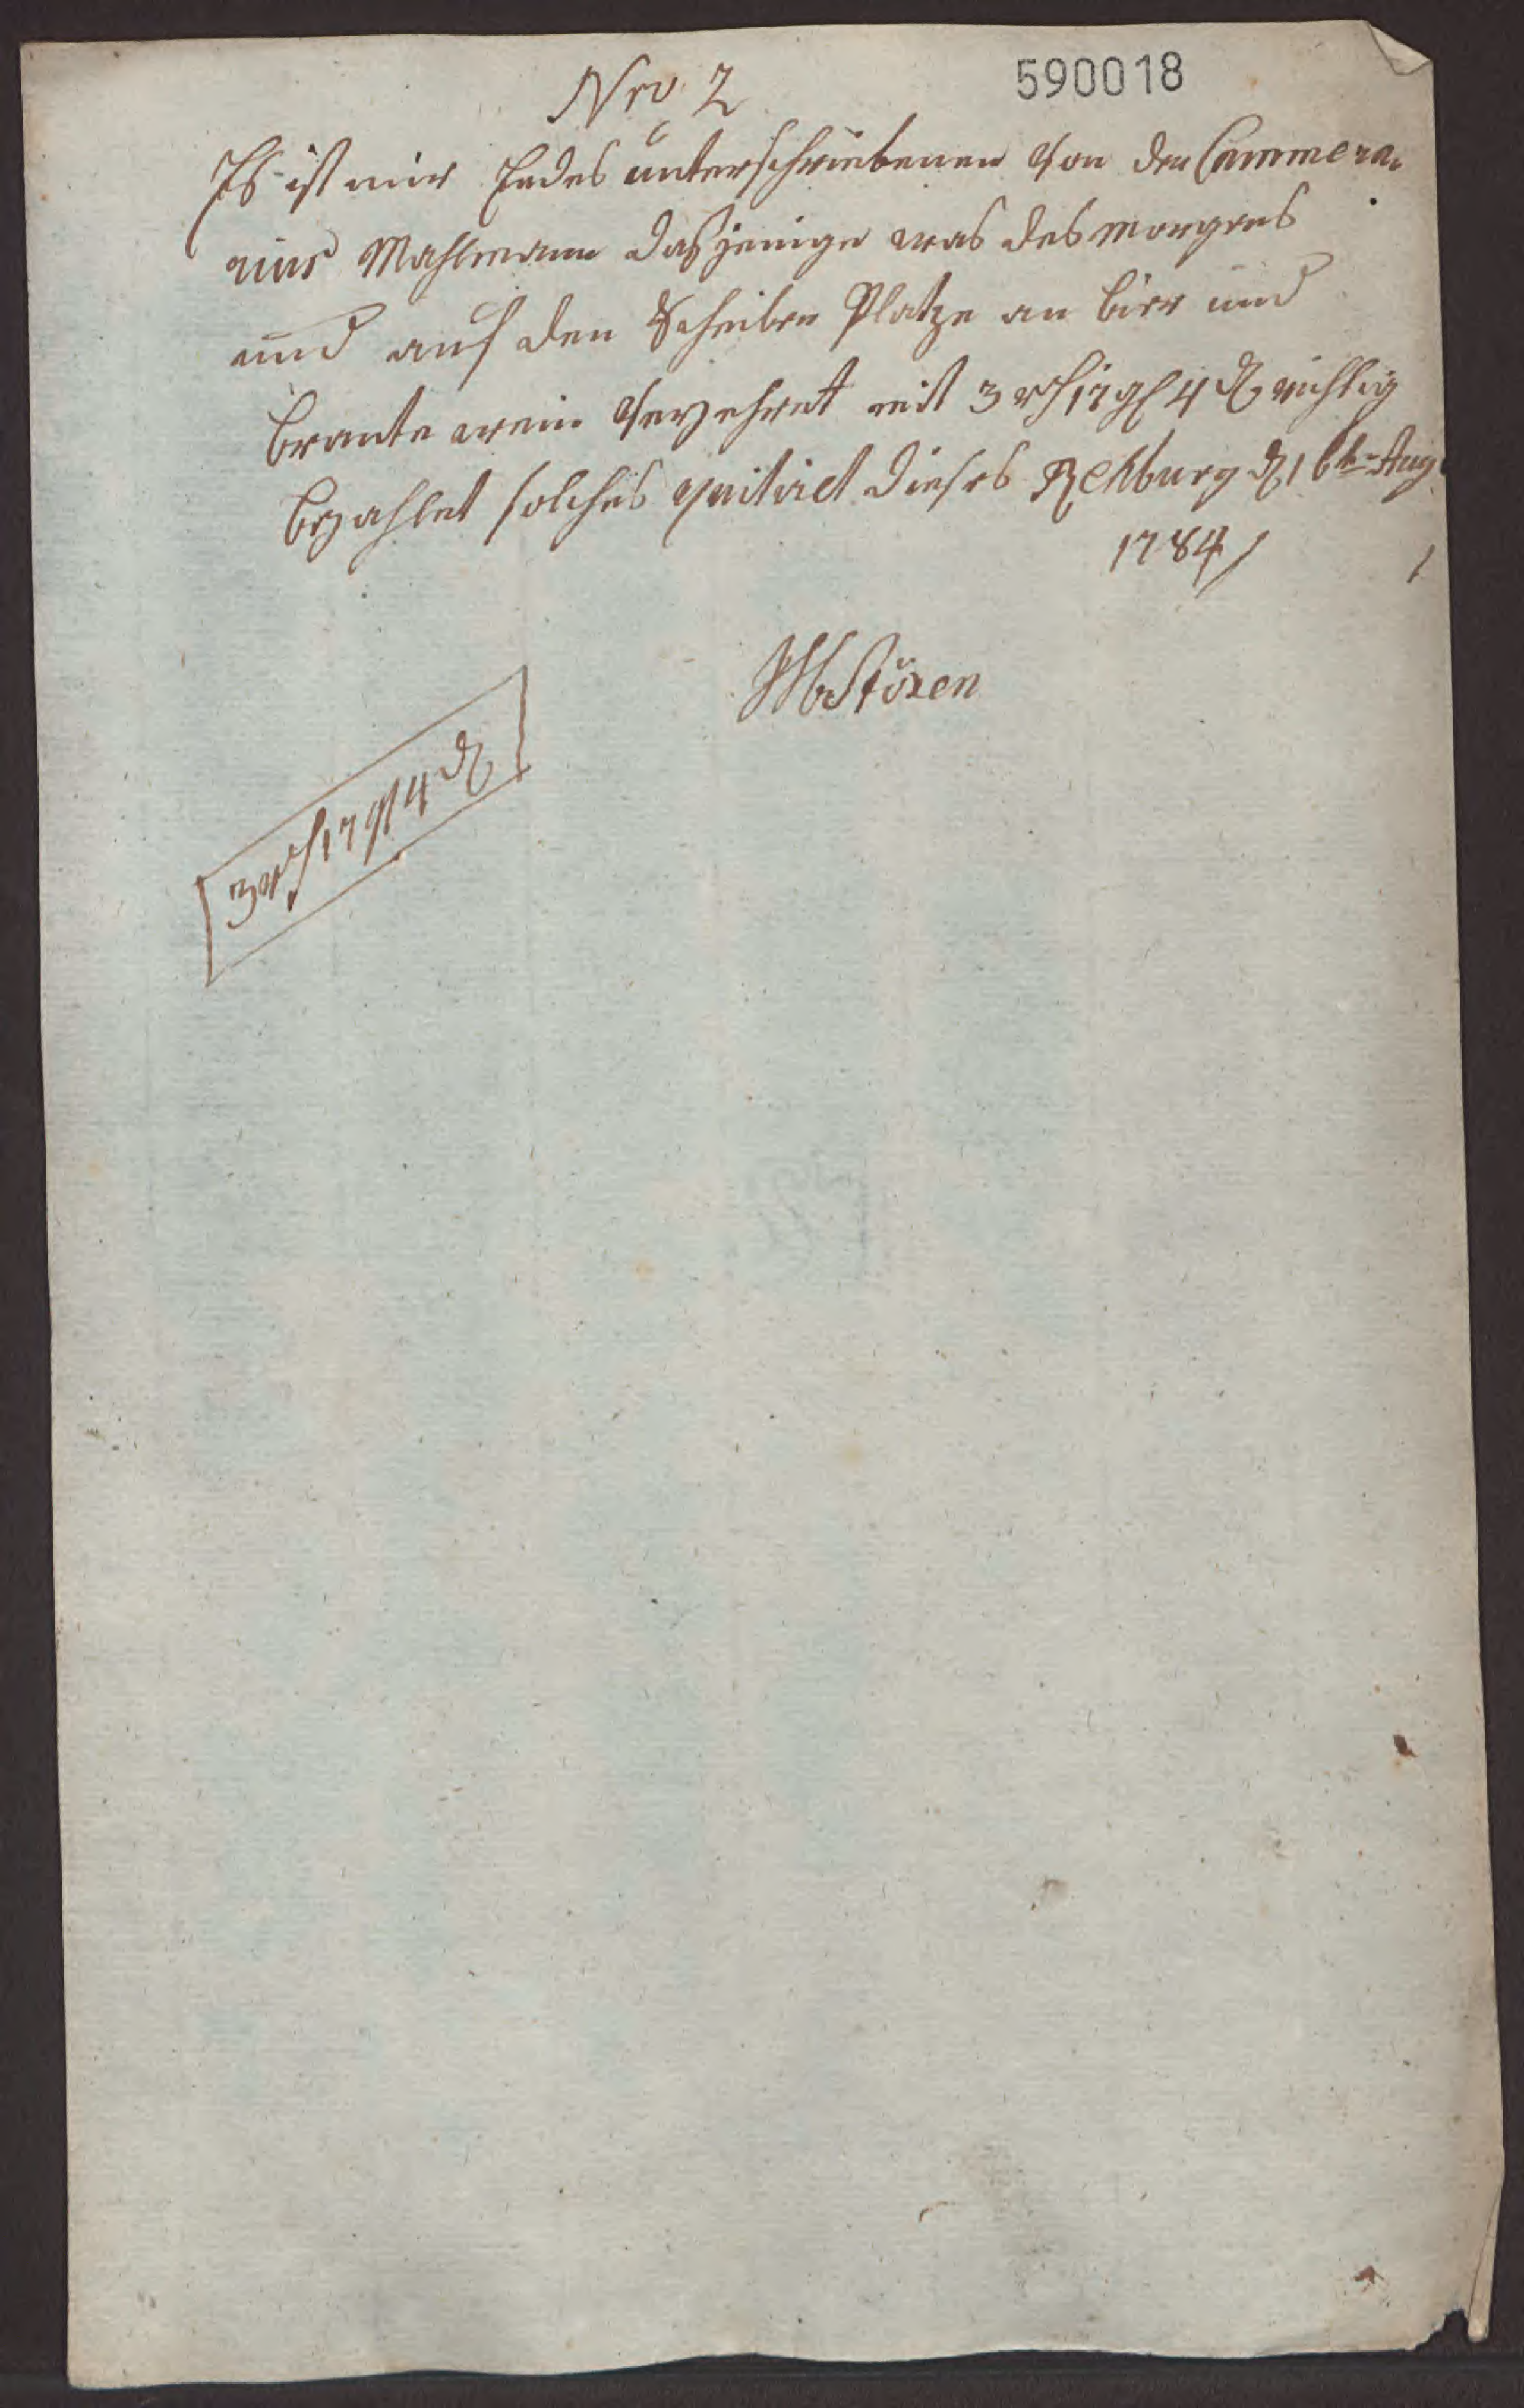 Nro 2
590018
Es ist mir Endes unterschriebenen von den Cammera,
rius Mahlmann dasjenige was des morgens
und auf den Scheiben Platze an bier und
brante wein verzehret mit 3 rth 17 gl 4 d richtig
bezahlet solches quitiret dieses Rehburg d 16te Aug
1784
Stözen
3 rth 17 gl 4 d